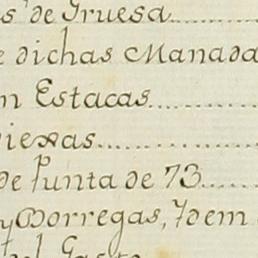 s de Gruesa
e dichas Manada
n Estacas
iexas
de Punta de 73
y Borregas, Idem
Gasto